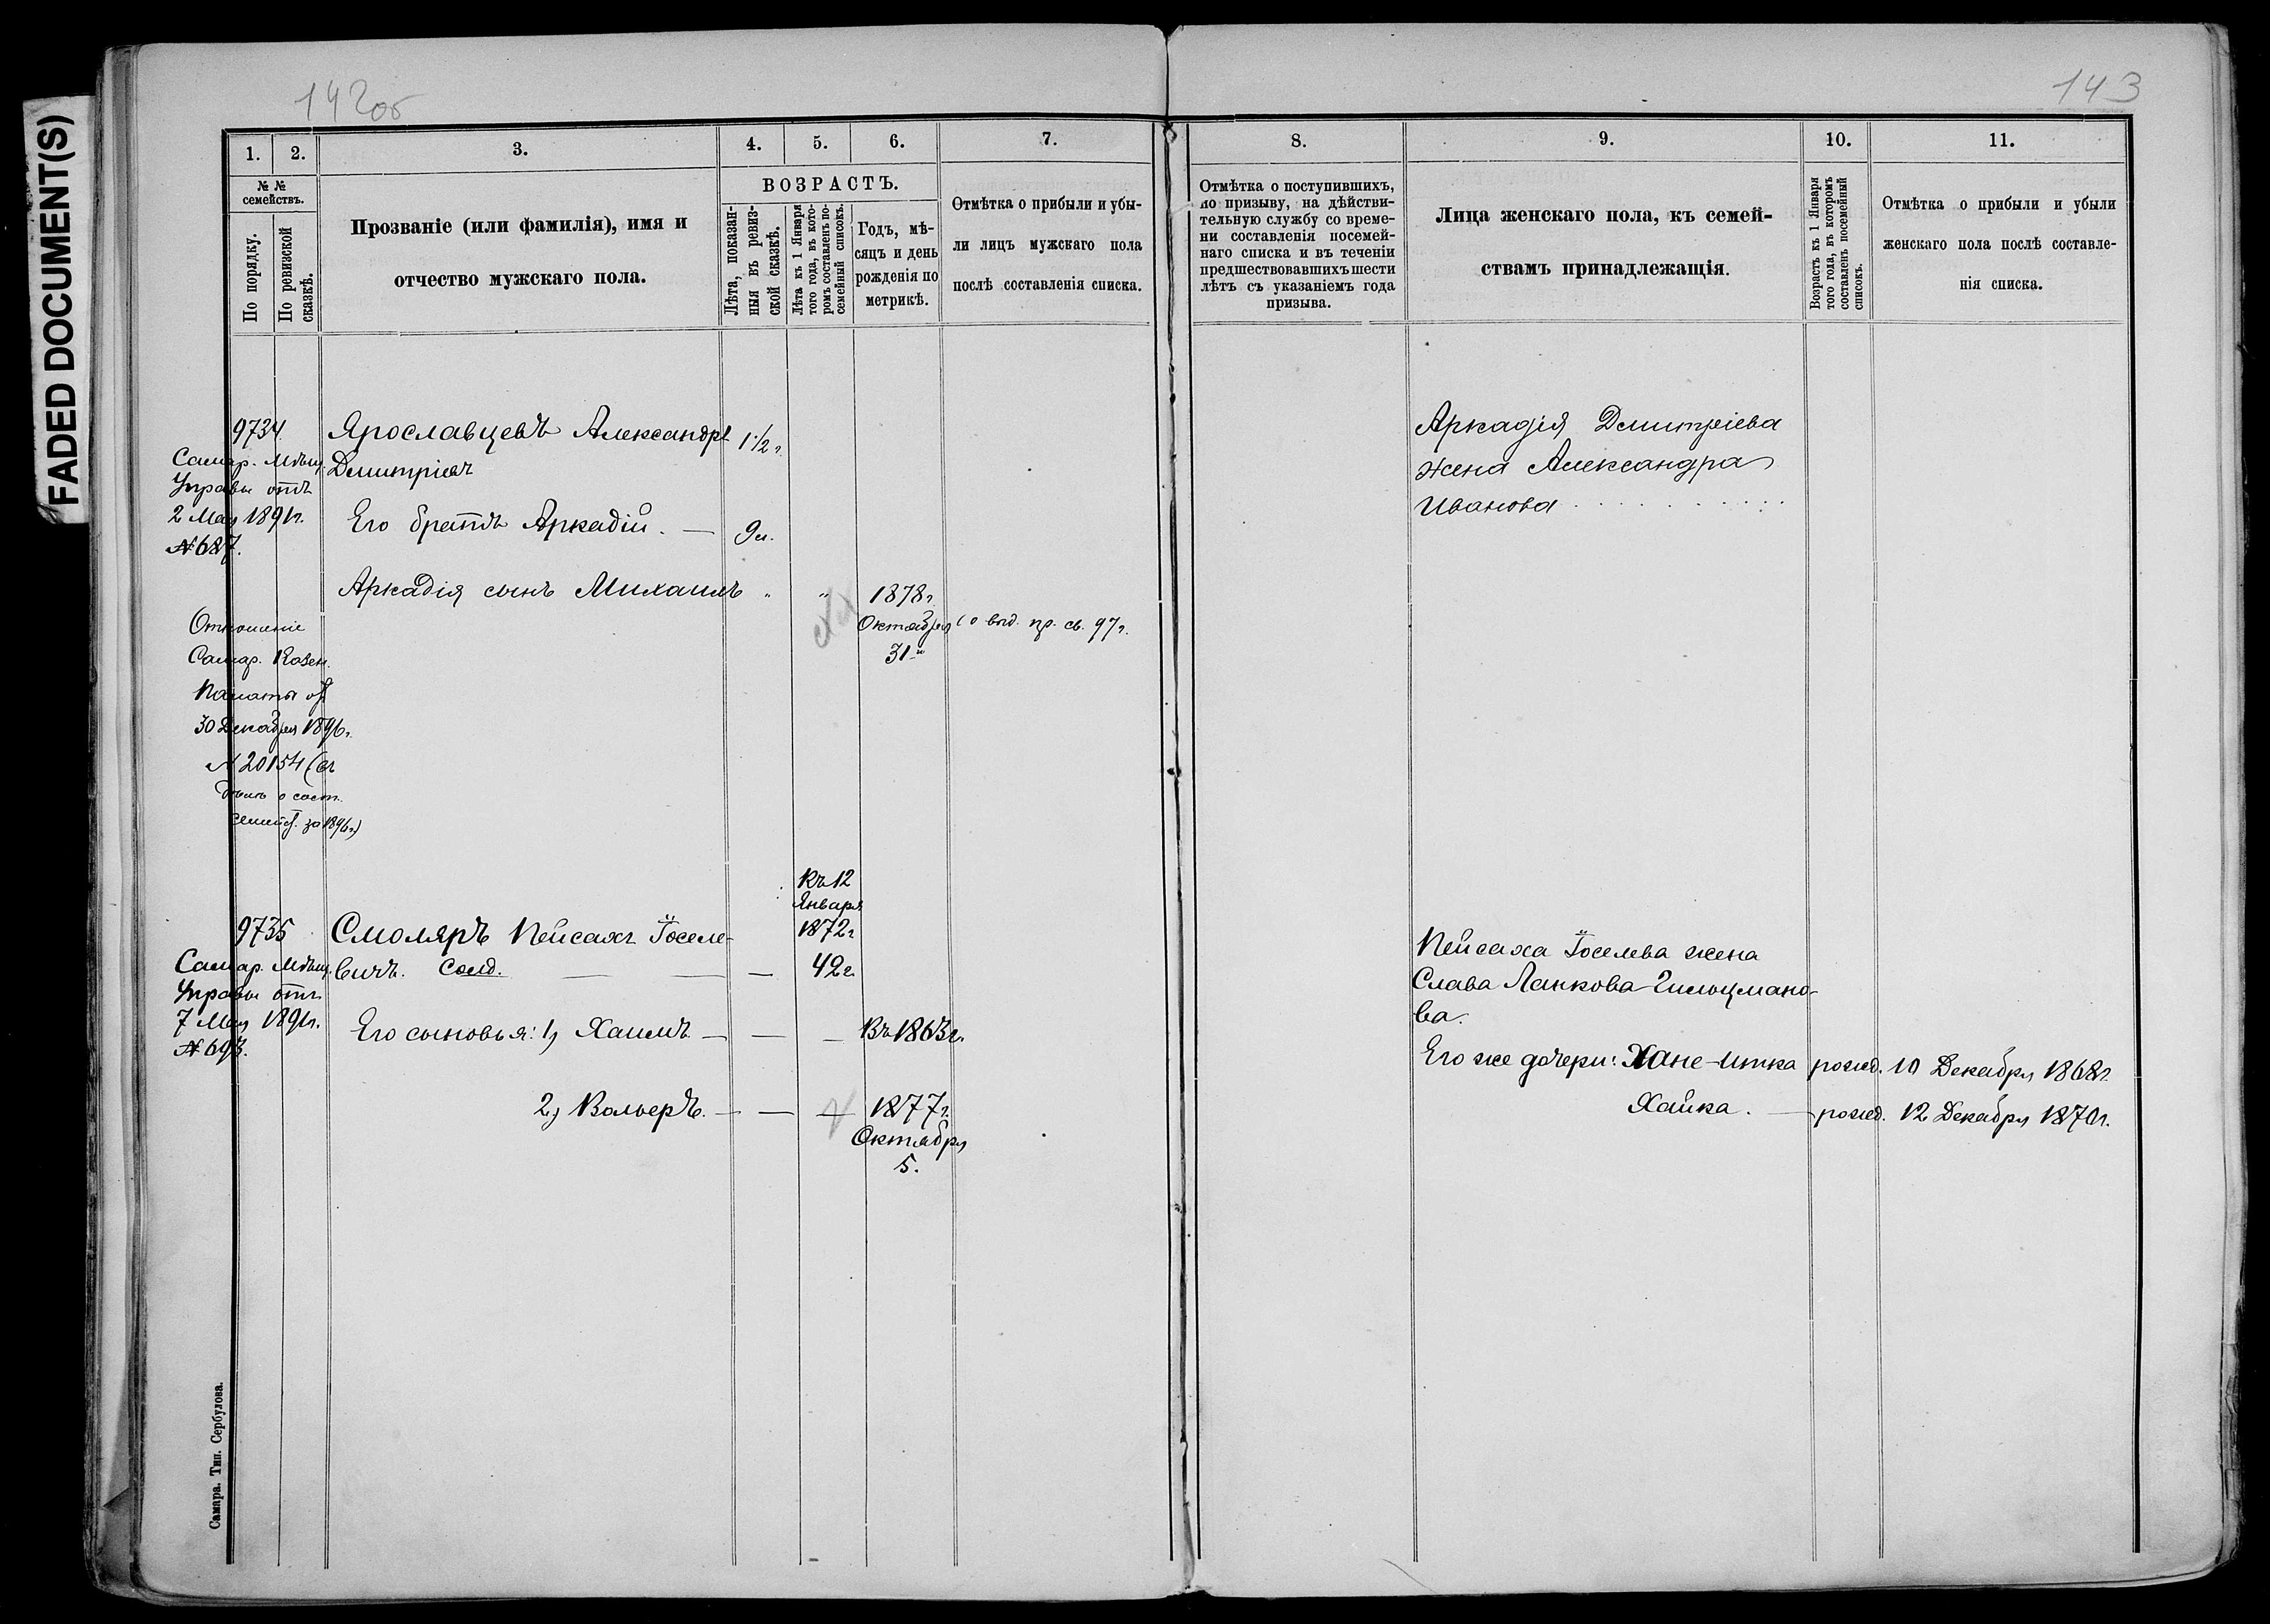 FADED DOCUMENT(S)
142об
143
1. 2. 3. 4. 5. 6. 7.
№ №
семействъ.
По порядку.
По ревизской
сказкѣ.
Прозваніе (или фамилія), имя и
отчество мужскаго пола.
ВОЗРАСТЪ.
Лѣта, показан-
ныя въ ревиз-
ской сказкѣ.
Лѣта къ 1 Января
того года, въ кото-
ромъ составленъ по-
семейный списокъ.
Годъ, мѣ-
сяцъ и день
рожденія по
метрикѣ.
Отмѣтка о прибыли и убы-
ли лицъ мужскаго пола
послѣ составленія списка.
8. 9. 10. 11.
Отмѣтка о поступившихъ,
по призыву, на дѣйстви-
тельную службу со време-
ни составленія посемей-
наго списка и въ теченіи
предшествовавшихъ шести
лѣтъ съ указаніемъ года
призыва.
Лица женскаго пола, къ семей-
ствамъ принадлежащія.
Возрастъ къ 1 Января
того года, въ которомъ
составленъ посемейный
списокъ.
Отмѣтка о прибыли и убыли
женскаго пола послѣ составле-
нія списка.
9734.
Самар. Мѣщ.
Управы отъ
2 Мая 1891г.
№687.
Ярославцевъ Александръ 1½ г.
Дмитріев
Его братъ Аркадій. — 9м.
Аркадія сынъ Михаилъ " " 1878г.
Октября
31-го
(о выд. пр. св. 97г.
Отношеніе
Самар. Казен.
Палаты от
30 Декабря 1896г.
№20154 (въ
дѣлѣ о сост.
семейст. за 1896г)
Аркадія Дмитріева
жена Александра
Иванова
Къ 12
Января
1872г
42г.
9735
Самар. Мѣщ.
Управы отъ
7 Мая 1891г.
№693.
Смоляръ Пейсахъ Іоселе-
вичъ. Солд. — — —
Его сыновья: 1, Хаимъ — — — Въ 1863г.
2, Вольеръ. — — — 1877г.
Октября
5.
Пейсаха Іоселева жена
Слава Ланкова Гильцмано-
ва.
Его же дочери: Хане-Итка рожд. 10 Декабря 1868г.
Хайка. — рожд. 12 Декабря 1870г.
Самара. Тип. Сербулова.